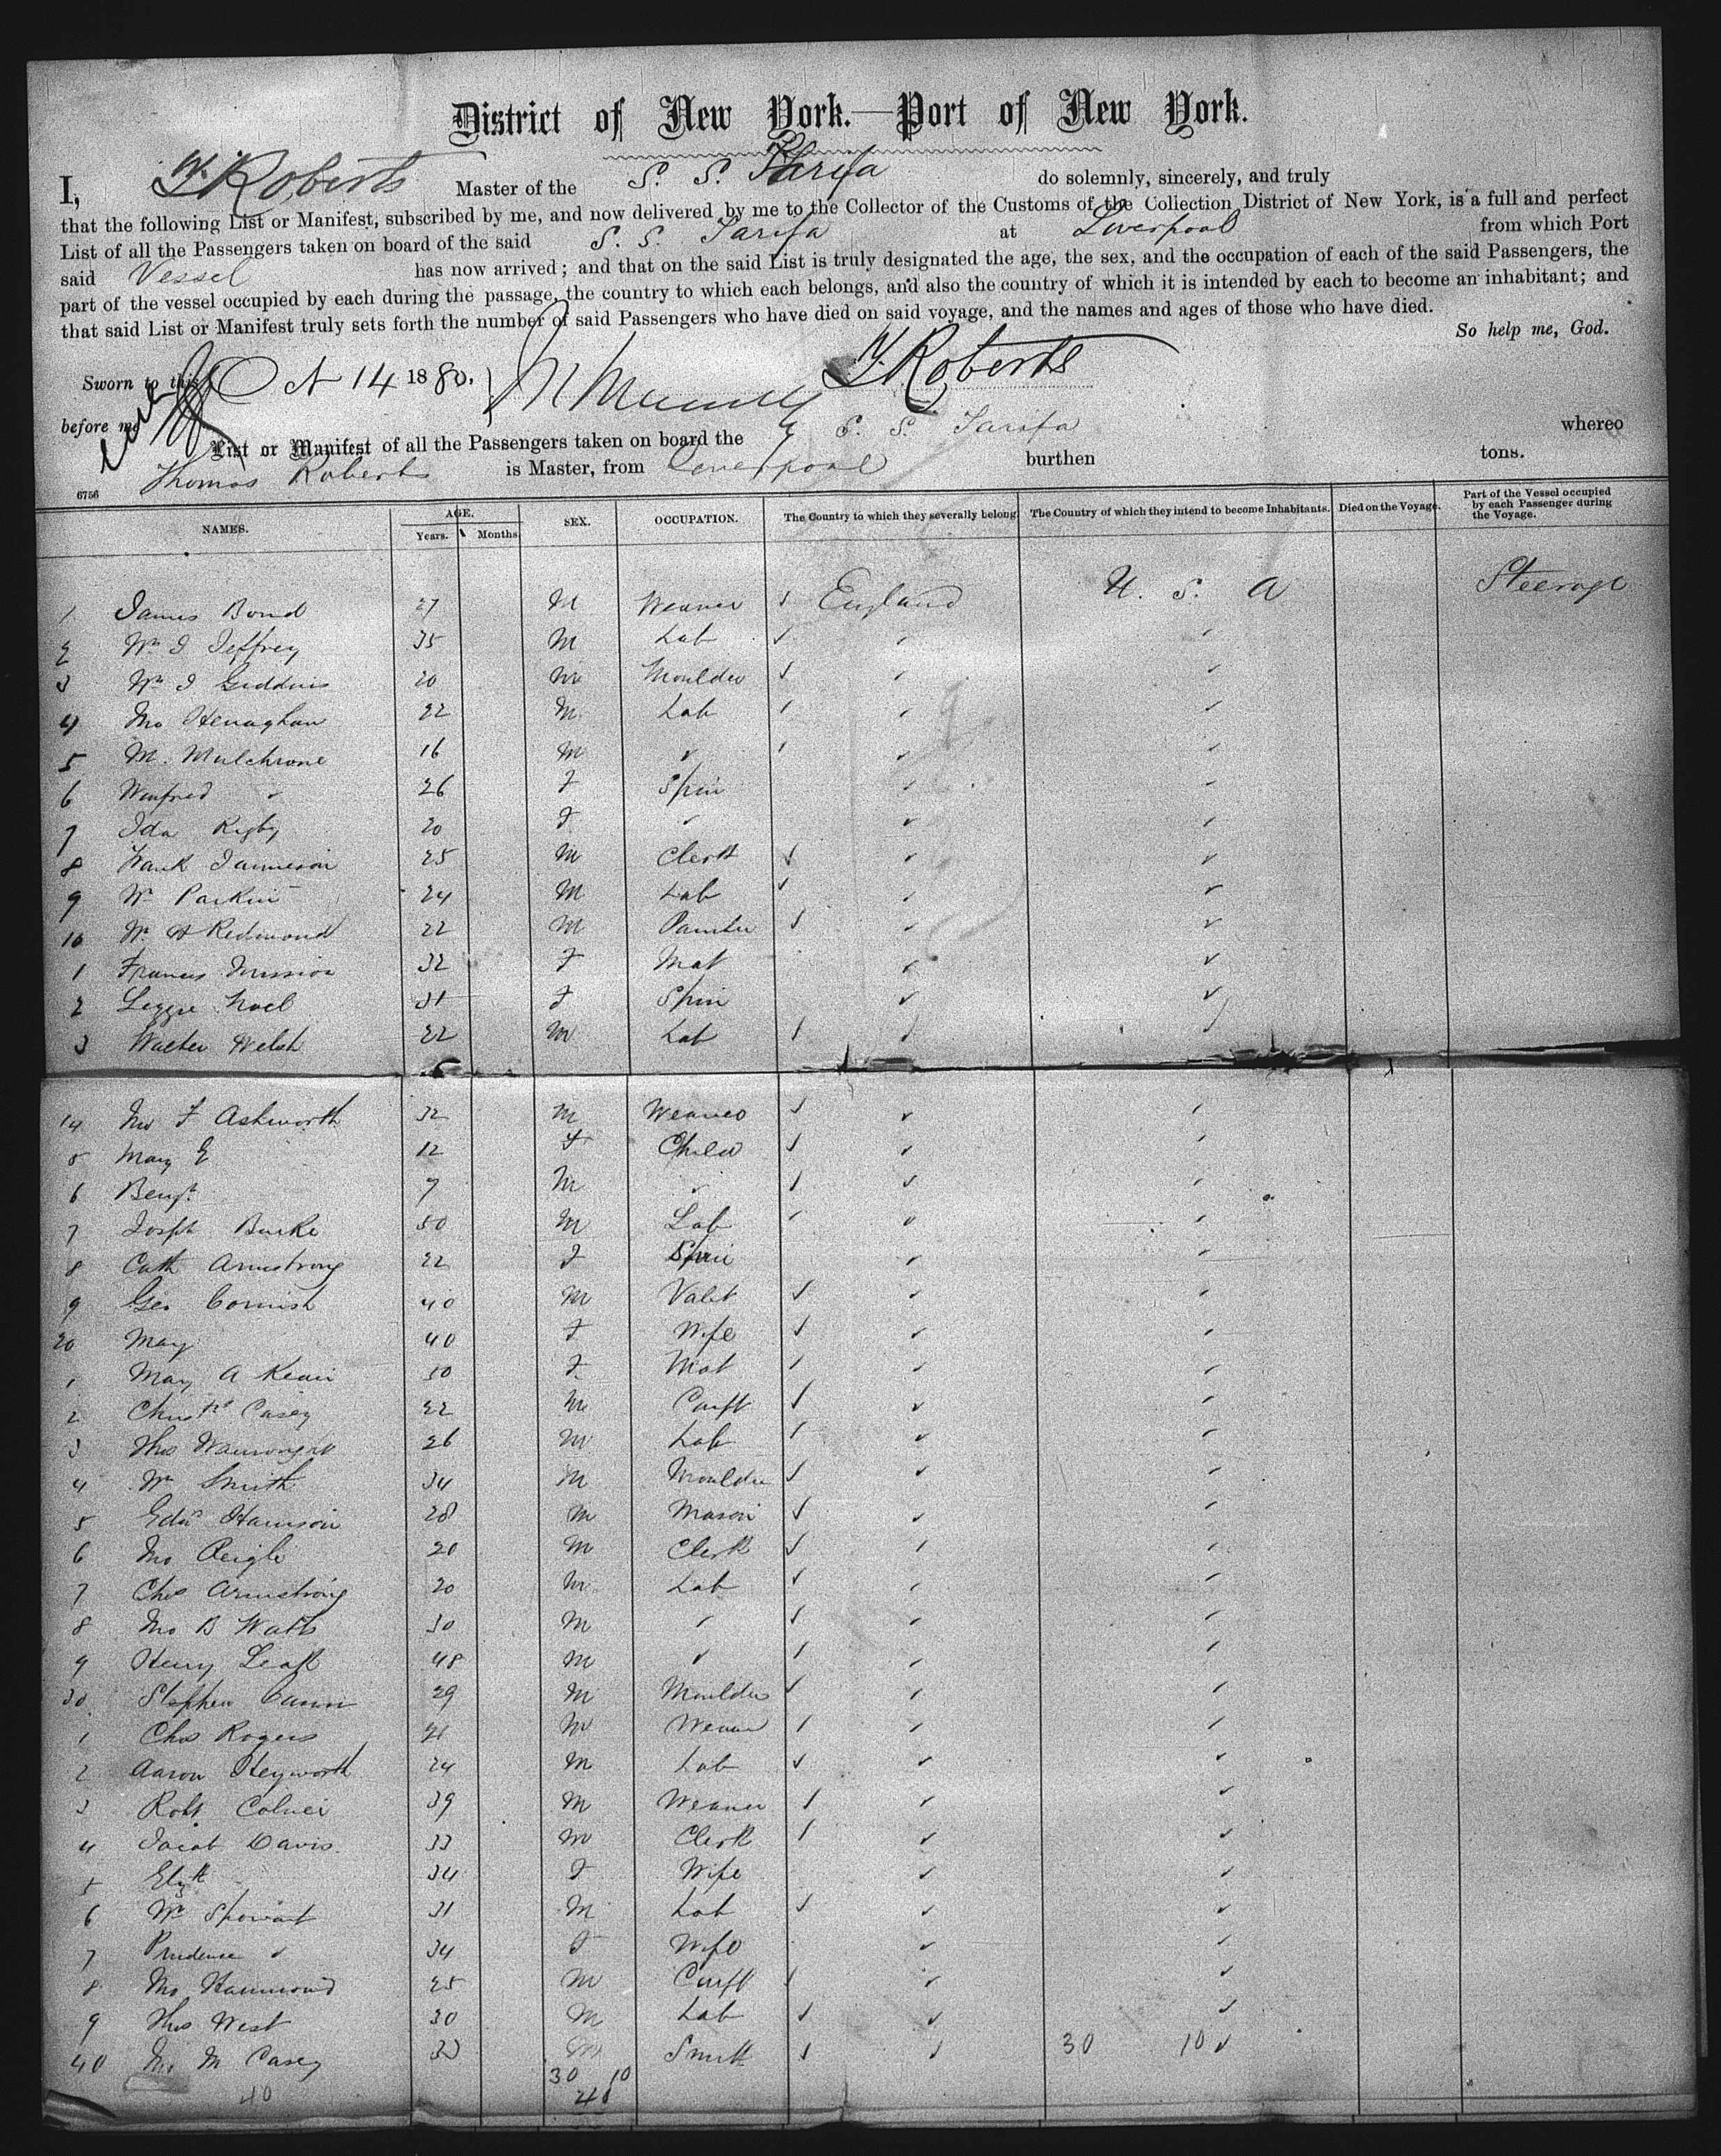 District of New York.—Port of New York.
I, T. Roberts Master of the S. S. Tarifa do solemnly, sincerely, and truly
that the following List or Manifest, subscribed by me, and now delivered by me to the Collector of the Customs of the Collection District of New York, is a full and perfect
List of all the Passengers taken on board of the said S. S. Tarifa at Liverpool from which Port
said Vessel has now arrived; and that on the said List is truly designated the age, the sex, and the occupation of each of the said Passengers, the
part of the vessel occupied by each during the passage, the country to which each belongs, and also the country of which it is intended by each to become an inhabitant; and
that said List or Manifest truly sets forth the number of said Passengers who have died on said voyage, and the names and ages of those who have died.
So help me, God.
Sworn to this Oct 14 1880. T. Roberts
before me
List or Manifest of all the Passengers taken on board the S. S. Tarifa whereo
Thomas Roberts is Master, from Liverpool burthen tons.
6756
NAMES. AGE. Years. Months SEX. OCCUPATION. The Country to which they severally belong. The Country of which they intend to become Inhabitants. Died on the Voyage. Part of the Vessel occupied by each Passenger during the Voyage.
1 James Bond 27 M Weaver England U. S. A Steerage
2 Wm J Jeffrey 35 M Lab
3 Wm J Giddins 20 M Moulder
4 Jno Henaghan 22 M Lab
5 M. Mulchrone 16 M
6 Winfred 26 F Spin
7 Ida Rigby 20 F
8 Frank Jammeson 25 M Clerk
9 Wm Parkin 24 M Lab
10 Wm H Redmond 22 M Painter
1 Frances 32 F Mat
2 Lizzie Noel 31 F Spin
3 Walter Welsh 22 M Lab
14 Jno F Ashworth 32 M Weaver
5 Mary E 12 F Child
6 Benjn 7 M
7 Joseph Burke 50 M Lab
8 Cath Armstrong 22 F Spin
9 Geo Cornish 40 M Valet
20 Mary 40 F Wife
1 Mary A 50 F Mat
2 Casey 22 M Carpt
3 Thos Wainwright 26 M Lab
4 Wm Smith 34 M Moulder
5 Edwd Harrison 28 M Mason
6 Jno 20 M Clerk
7 Chas Armstrong 20 M Lab
8 Jno B Watts 30 M
9 Henry Leaf 48 M
30 Stephen 29 M Moulder
1 Chas Rogers 21 M Weaver
2 Aaron Heyworth 24 M Lab
3 Robt 39 M Weaver
4 Jacob Davis 33 M Clerk
5 Elizth 34 F Wife
6 Wm 31 M Lab
7 Prudence 34 F Wife
8 Jno Hammond 25 M Carpt
9 Thos West 30 M Lab
40 Jno M Casey M Smith 30 10
40 30 10
40